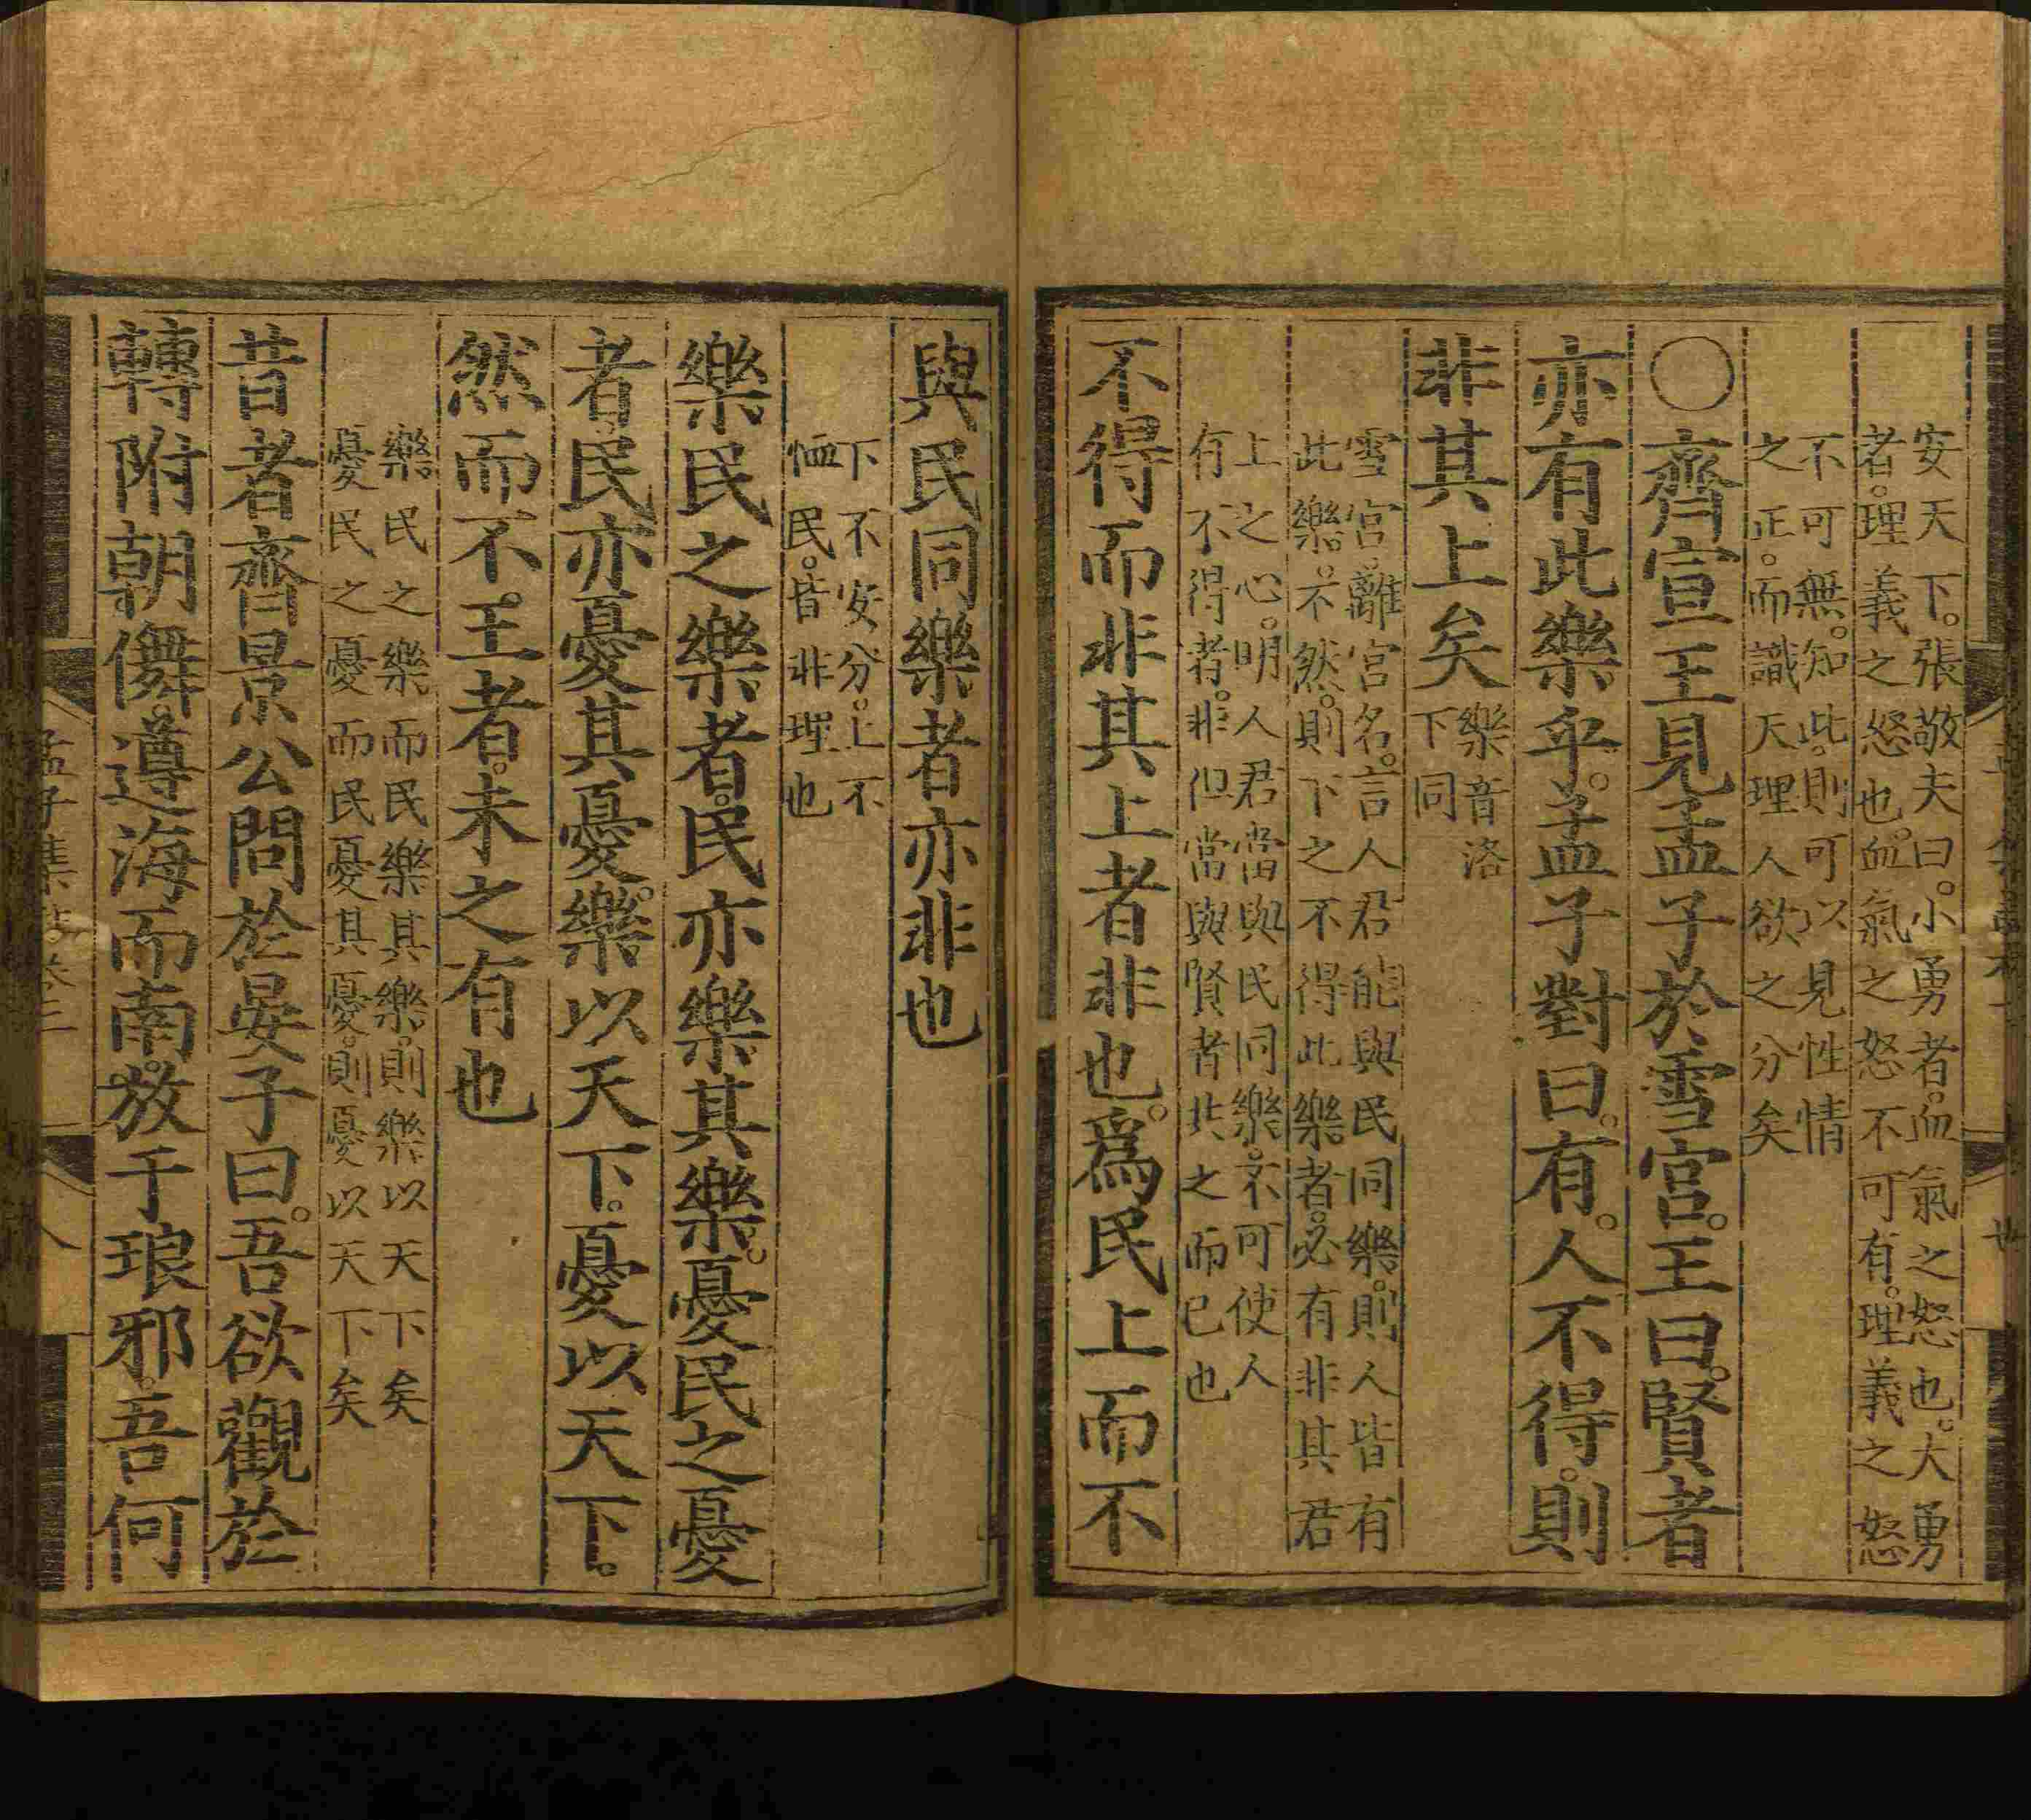 安天下。張敬夫曰。小勇者。血氣之怒也。大勇
者。理義之怒也。血氣之怒不可有。理義之怒
不可無。知此。則可以見性情
之正。而識天理人欲之分矣
○齊宣王見孟子於雪宮。王曰。賢者
亦有此樂乎。孟子對曰。有。人不得。則
非其上矣
樂音洛
下同
雪宮。離宮名。言人君能與民同樂。則人皆有
此樂。不然。則下之不得此樂者。必有非其君
上之心。明人君當與民同樂。不可使人
有不得者。非但當與賢者共之而已也
不得而非其上者非也。爲民上而不
與民同樂者亦非也
下不安分。上不
恤民。皆非理也
樂民之樂者。民亦樂其樂。憂民之憂
者。民亦憂其憂。樂以天下。憂以天下。
然而不王者。未之有也
樂民之樂而民樂其樂。則樂以天下矣
憂民之憂而民憂其憂。則憂以天下矣
昔者齊景公問於晏子曰。吾欲觀於
轉附朝儛。遵海而南。放于琅邪。吾何
孟子集註卷二
八